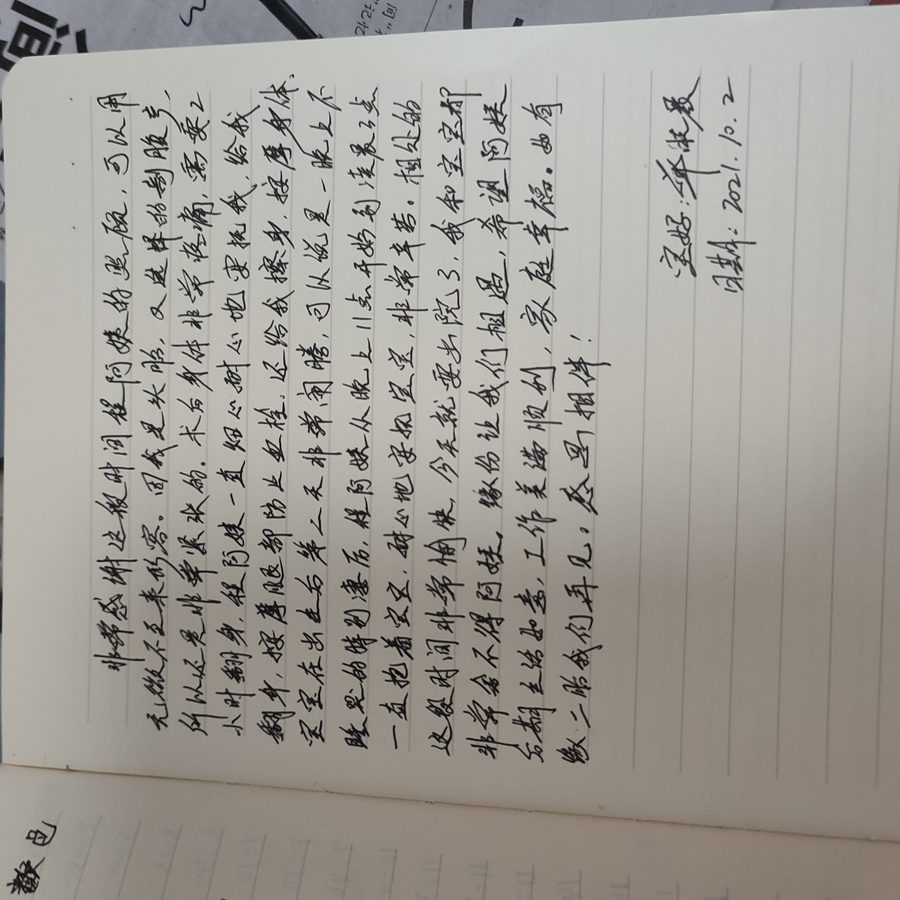 非常感谢这段时间程阿姨的照顾，可以用
无微不至来形容。因我是头胎，又选择的剖腹产，
所以还是非常紧张的。术后身体非常疼痛，需要2
小时翻身，程阿姨一直细心耐心地安抚我，给我
翻身，按摩腿部防止血栓，还给我擦身，按摩身体。
宝宝在出生后第二天非常闹腾，可以说是一晚上不
睡，哭的特别凄厉，程阿姨从晚上11点开始到凌晨3点
一直抱着宝宝，耐心地安抚宝宝，非常辛苦。相处的
这段时间非常愉快，今天就要出院了，我和宝宝都
非常舍不得阿姨。缘份让我们相遇，希望阿姨
后期生活如意，工作美满顺利，家庭幸福。如有
缘二胎我们再见。感恩相伴！
宝妈：
日期：2021.10.2